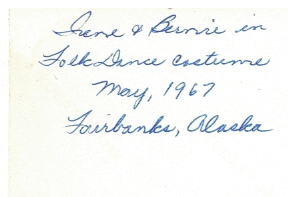 Irene & Bernie in
Folk Dance costume
May, 1967
Fairbanks, Alaska